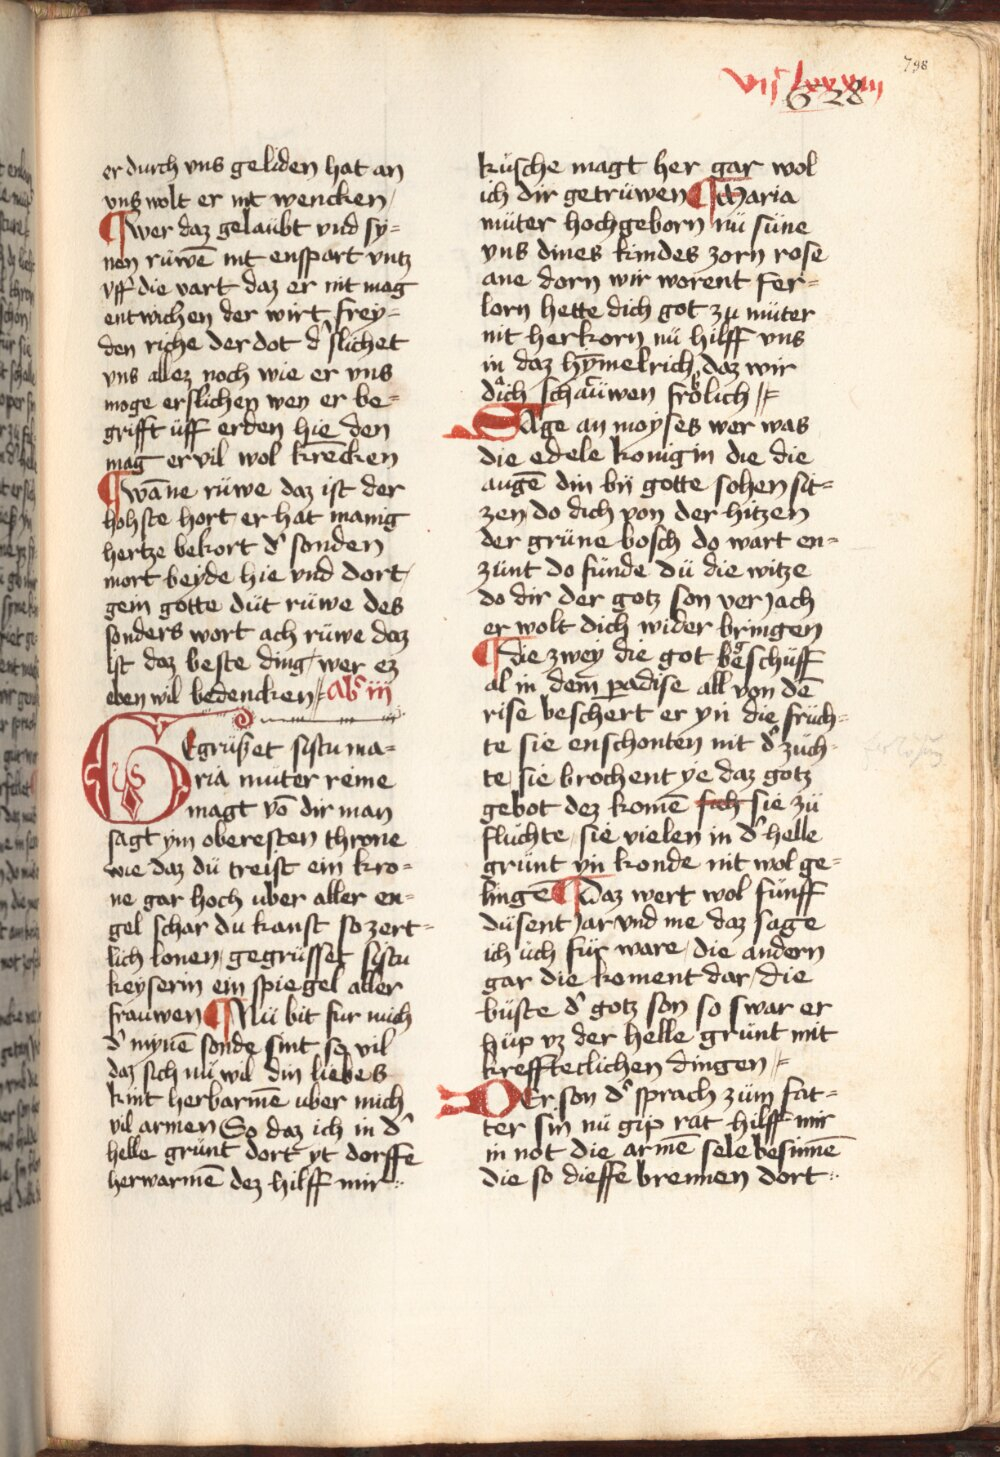 798
vijͨ lxxxxiij
628
er durch vns geliden hat an
vns wolt er nit wencken /
¶ wer daz gelaübt vnd sy=
nen rüwē nit enspart vntz
vff die vart daz er nit mag
entwichen der wirt frey=
den riche der dot dˀ slichet
vns allez noch wie er vns
moge erslichen wen er be=
grifft üff erden hie den
mag er vil wol krēcken
¶ wāne rüwe daz ist der
hohste hort er hat manig
hertze bekort dˀ sonden
mort beyde hie vnd dort /
gein gotte düt rüwe des
sonders wort ach rüwe daz
ist daz beste ding / wer ez
eben wil bedencken // Abˀ iij
GEgrüsset sistu ma=
ria muter reine
magt vō dir man
sagt ym oberesten throne
wie daz dü treist ein kro=
ne gar hoch uber aller en=
gel schar du kanst so zert=
lich lonen / gegrüsset sistu
keyserin ein spiegel aller
frauwen ¶ Nü bit fur mich
dˀ mynē sonde sint so vil
daz sich nü wil din liebes
kint herbarmē uber mich
vil armen So daz ich in dˀ
helle grünt dort yt dorffe
herwarmē dez hilff mir
küsche magt her gar wol
ich dir getrüwen ¶ Maria
müter hochgeborn nü süne
vns dines kindes zorn rose
ane dorn wir worent fer=
lorn hette dich got zu müter
nit herkorn nü hilff vns
in daz hȳmelrich daz wir
dich schaüwen frolich //
SAge an moyses wer was
die edele konigin die die
augē din bÿ gotte sohen sit=
zen do dich von der hitzen
der grüne bosch do wart en=
zünt do fünde dü die witze
do dir der gotz son verjach
er wolt dich wider bringen
¶ die zwey die got beschüff
al in dem padise all von dē
rise beschert er yn die früch=
te sie enschonten nit dˀ züch=
te / sie brochent ye daz gotz
gebot dez komē sich sie zü
flüchte / sie vielen in dˀ helle
grünt yn konde nit wol ge=
lingē ¶ Daz wert wol fünff
düsent jar vnd me daz sage
ich üch für ware / die andern
gar die koment dar / die
büste dˀ gotz son so swar er
hüp vz der helle grünt mit
kreffteclichen dingen //
DEr son dˀ sprach züm fat=
ter sin nü gip rat hilff mir
in not die armē sele besinnē
die so dieffe brennen dort